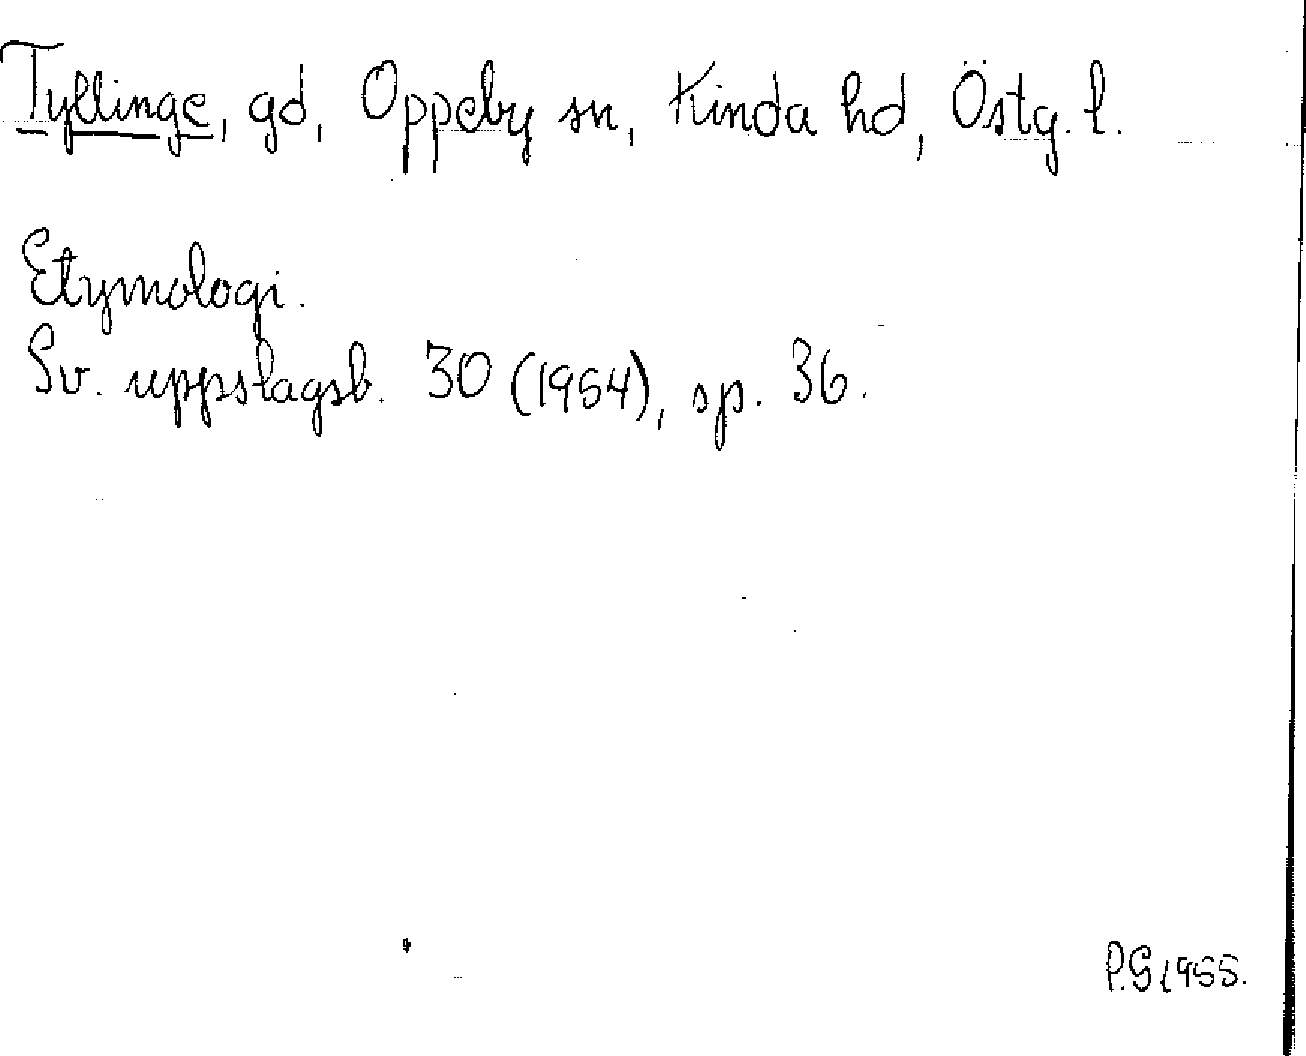 Tyllinge, gd, Oppeby sn, Kinda hd, Östg. l.
Etymologi.
Sv. uppslagsb. 30 (1954), sp. 36.
P.G 1955.